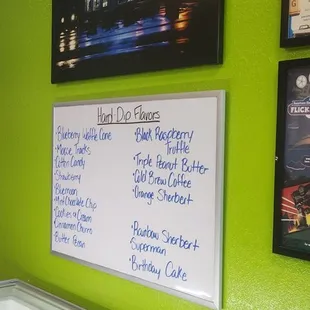 Hard Dip Flavors
Blueberry Waffle Cone
Moose Tracks
Cotton Candy
Strawberry
Bluemoon
Mint Chocolate Chip
Cookies n Cream
Cinnamon Churro
Butter Pecan
Black Raspberry
Truffle
Triple Peanut Butter
Cold Brew Coffee
Orange Sherbert
Rainbow Sherbert
Superman
Birthday Cake
FLICK